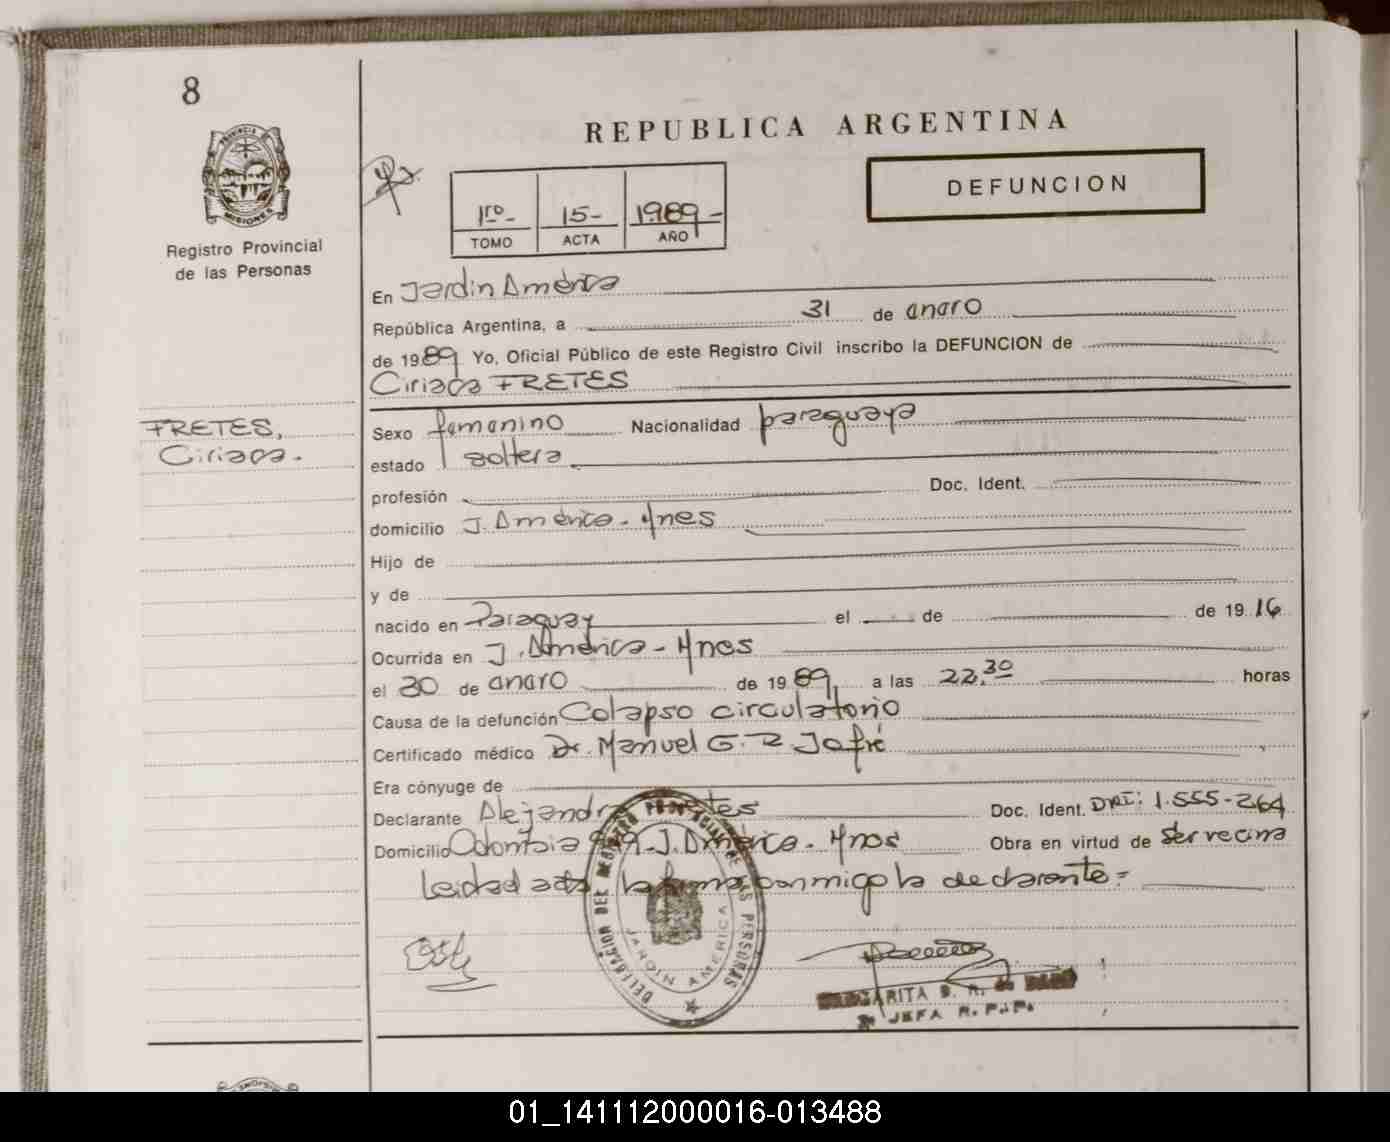 8
PROVINCIA DE
MISIONES
Registro Provincial
de las Personas
REPUBLICA ARGENTINA
DEFUNCION
1ro- 15- 1989-
TOMO ACTA AÑO
En Jardin América
República Argentina, a 31 de enero
de 1989 Yo, Oficial Público de este Registro Civil inscribo la DEFUNCION de
Ciriaca FRETES
FRETES,
Ciriaca.
Sexo femenino Nacionalidad paraguaya
estado soltera
profesión Doc. Ident.
domicilio J. América - Mnes
Hijo de
y de
nacido en Paraguay el de de 19 16
Ocurrida en J. América - Mnes
el 30 de enero de 19 89 a las 22,30 horas
Causa de la defunción Colapso circulatorio
Certificado médico Dr. Manuel G. R. Jofré
Era cónyuge de
Declarante Doc. Ident. DNI: 1.555-264
Domicilio J. América - Mnes Obra en virtud de ser vecina
Leida el acta la firma conmigo la declarante=
DELEGACION DEL REGISTRO PERSONAS
JARDIN AMERICA
MARGARITA
JEFA R.P.P.
01_141112000016-013488